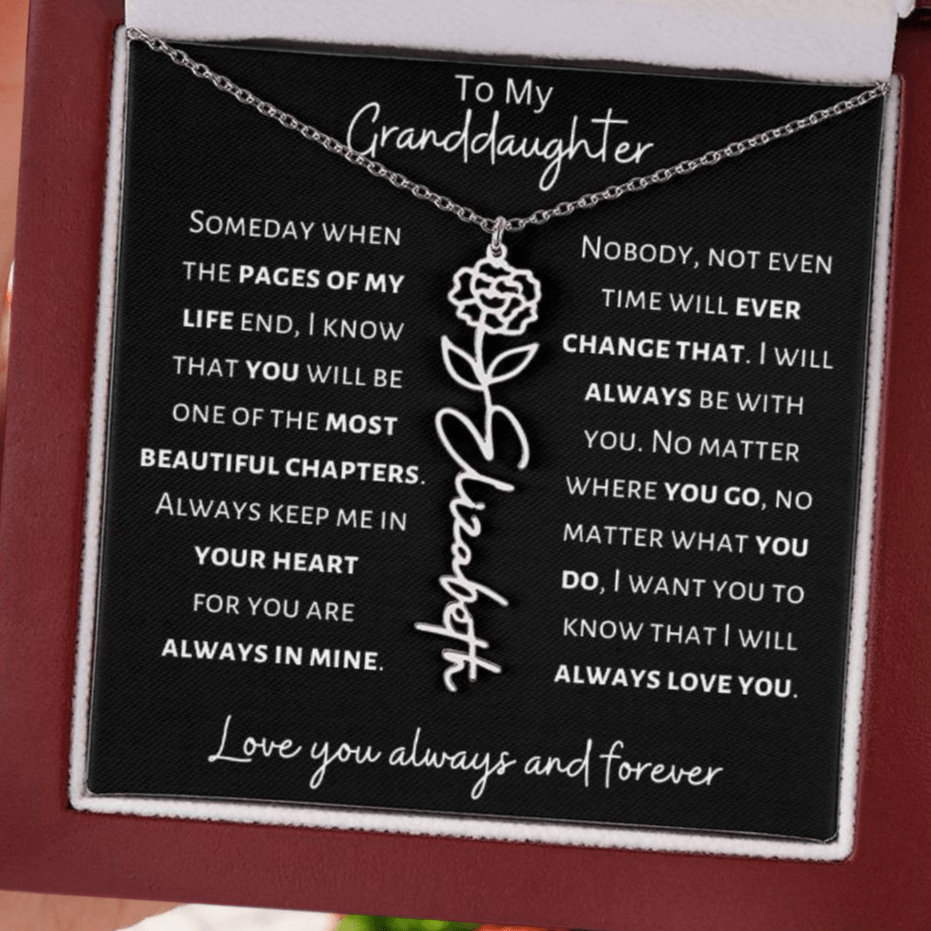 To My
Granddaughter
SOMEDAY WHEN
THE PAGES OF MY
LIFE END, I KNOW
THAT YOU WILL BE
ONE OF THE MOST
BEAUTIFUL CHAPTERS.
ALWAYS KEEP ME IN
YOUR HEART
FOR YOU ARE
ALWAYS IN MINE.
Elizabeth
NOBODY, NOT EVEN
TIME WILL EVER
CHANGE THAT. I WILL
ALWAYS BE WITH
YOU. NO MATTER
WHERE YOU GO, NO
MATTER WHAT YOU
DO, I WANT YOU TO
KNOW THAT I WILL
ALWAYS LOVE YOU.
Love you always and forever